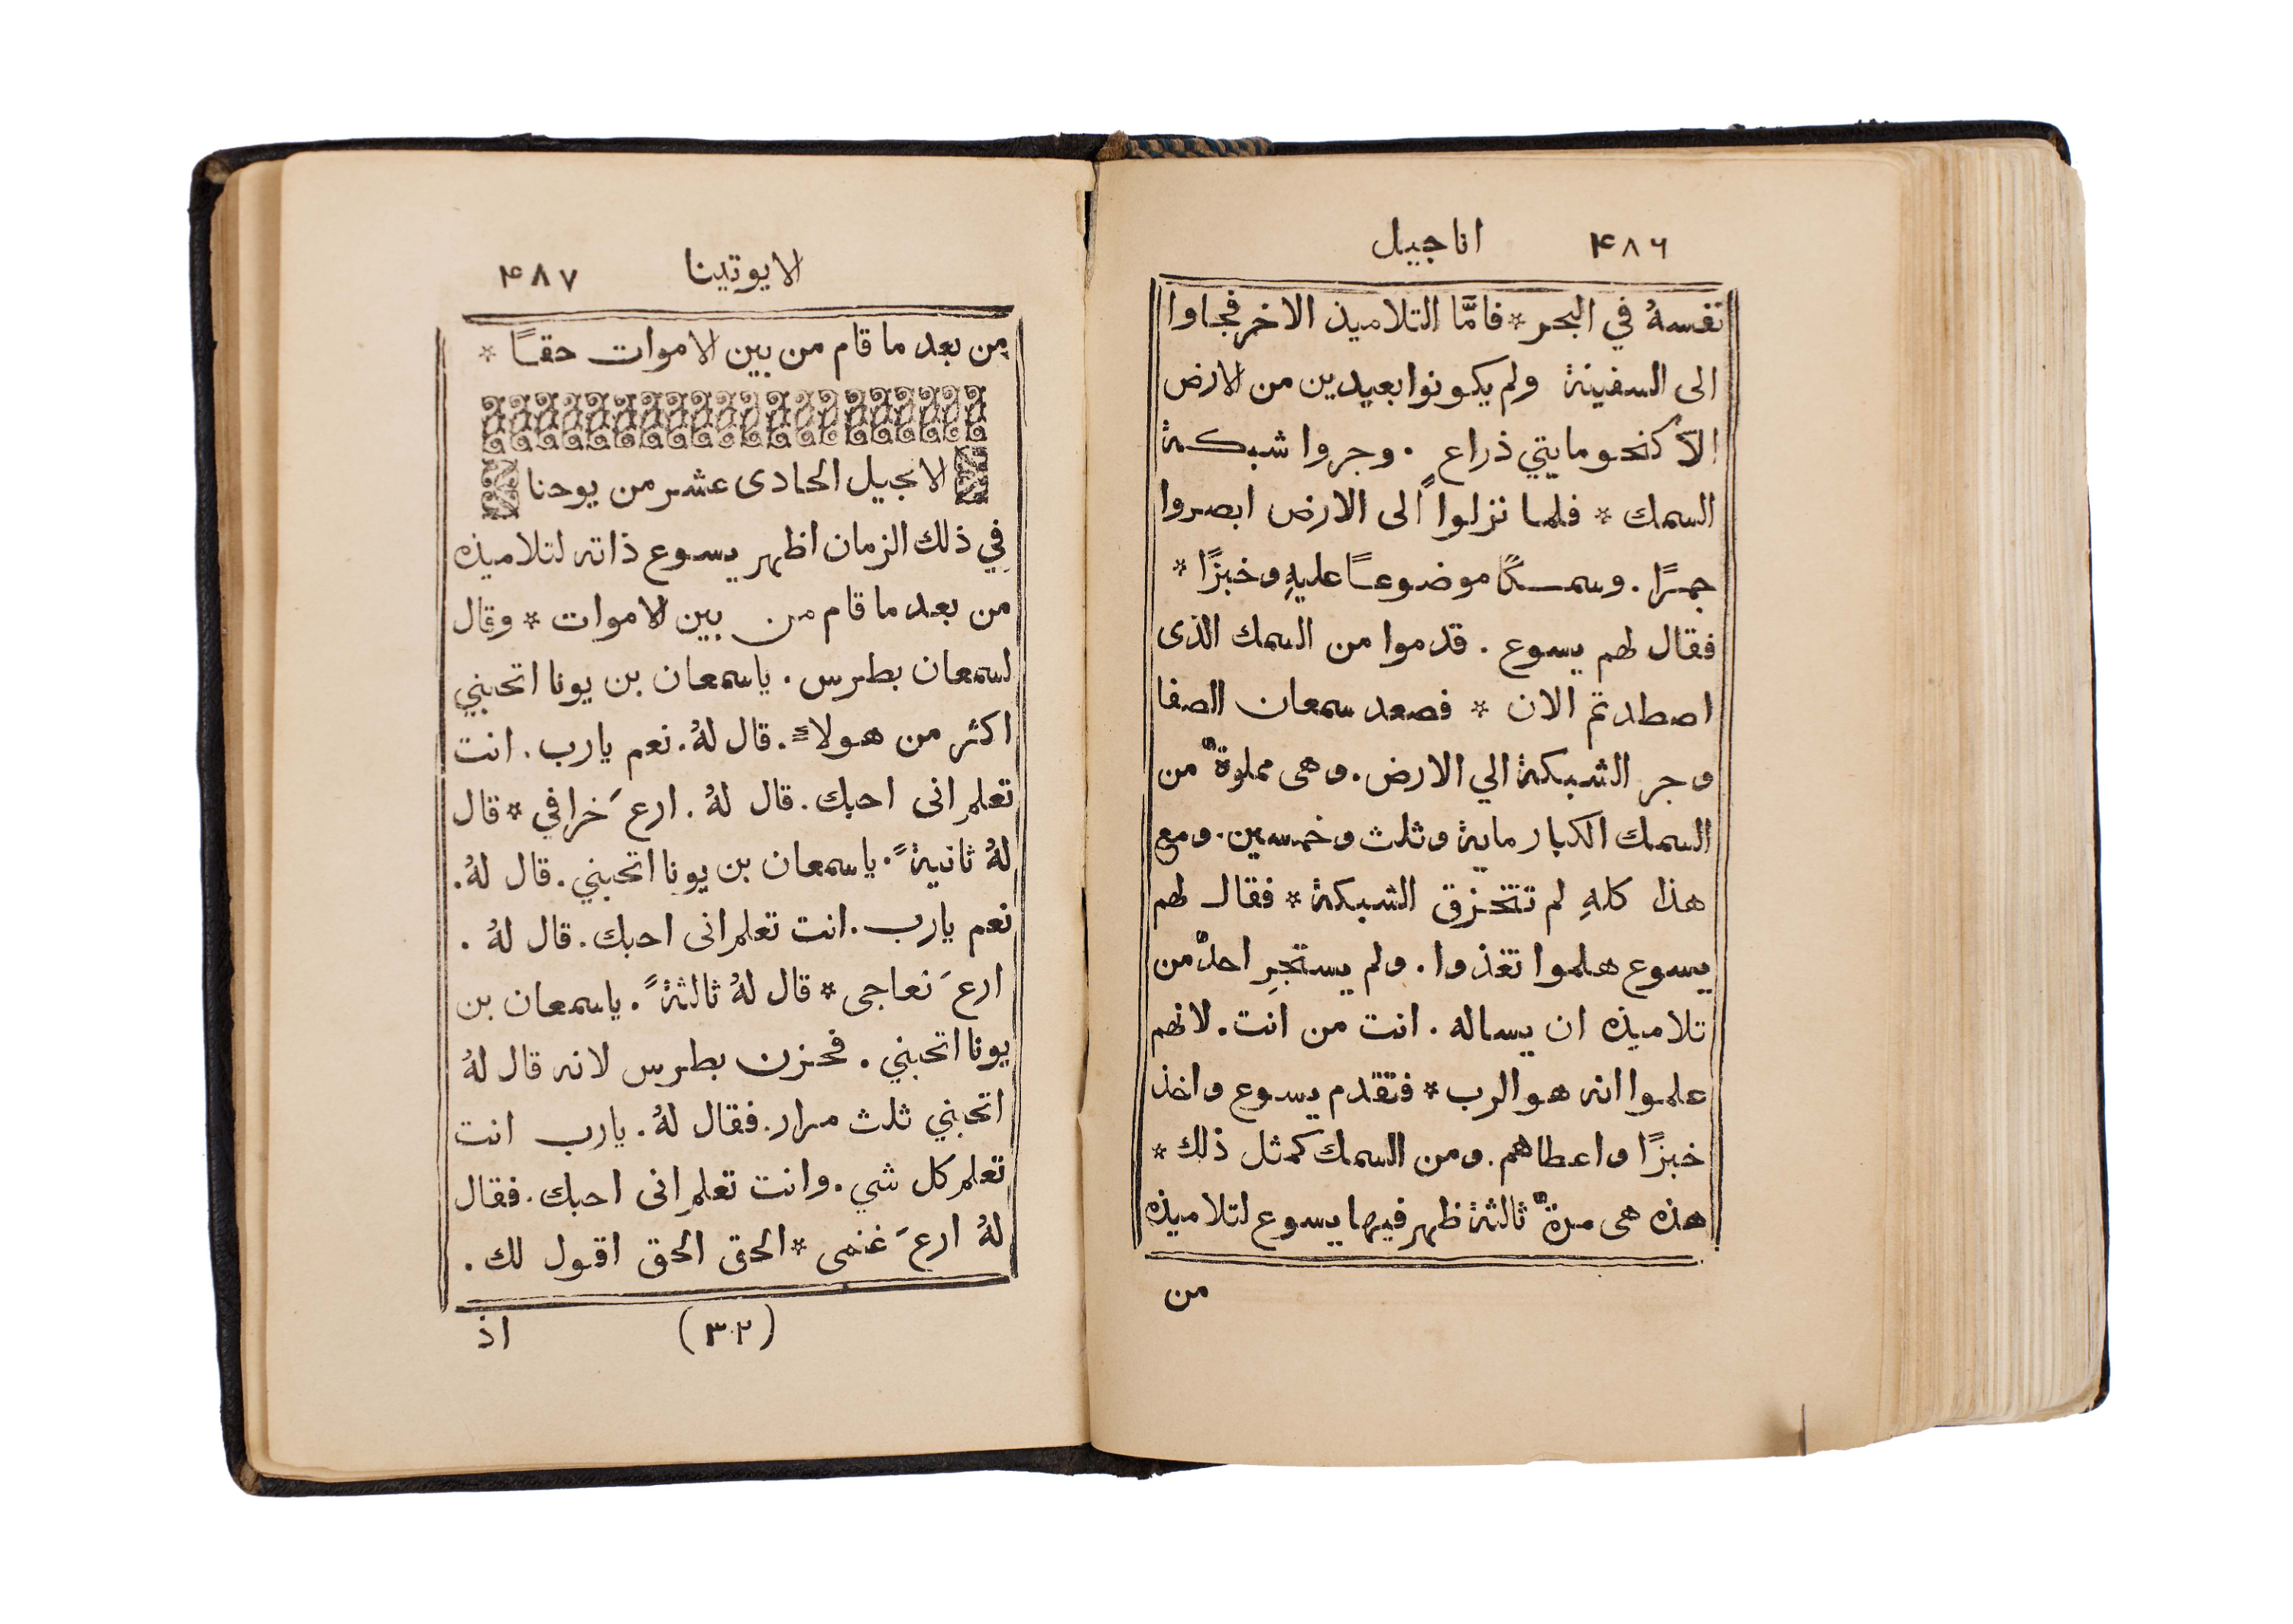 ٤٨٦ اناجيل
نفسهُ في البحر * فامَّا التلاميذ الاخر فجاوا
الى السفينة ولم يكونوا بعيدين من الارض
الاّ كنحو مايتي ذراع . وجروا شبكة
السمك * فلما نزلوا الى الارض ابصروا
جمرًا . وسمكًا موضوعاً عليهِ وخبزًا *
فقال لهم يسوع . قدموا من السمك الذى
اصطدتم الان * فصعد سمعان الصفا
وجر الشبكة الي الارض . وهى مملوةٌ من
السمك الكبار ماية وثلث وخمسين . ومع
هذا كلهِ لم تتخزق الشبكة * فقال لهم
يسوع هلموا تغذوا . ولم يستجرِ احدٌ من
تلاميذه ان يساله . انت من انت . لانهم
علموا انه هو الرب * فتقدم يسوع واخذ
خبزًا واعطاهم . ومن السمك كمثل ذلك *
هذه هى مرةٌ ثالثة ظهر فيها يسوع لتلاميذه
من
الايوتينا ٤٨٧
من بعد ما قام من بين الاموات حقاً *
الانجيل الحادى عشر من يوحنا
فِي ذلك الزمان اظهر يسوع ذاته لتلاميذه
من بعد ما قام من بين الاموات * وقال
لسمعان بطرس . ياسمعان بن يونا اتحبني
اكثر من هولاء . قال لهُ . نعم يارب . انت
تعلم انى احبك . قال لهُ . ارعَ خرافي * قال
لهُ ثانيةً . ياسمعان بن يونا اتحبني . قال لهُ .
نعم يارب . انت تعلم انى احبك . قال لهُ .
ارعَ نعاجى * قال لهُ ثالثةً . ياسمعان بن
يونا اتحبني . فحزن بطرس لانه قال لهُ
اتحبني ثلث مرار . فقال لهُ . يارب انت
تعلم كل شي . وانت تعلم انى احبك . فقال
لهُ ارعَ غنمى * الحق الحق اقول لك .
(٣٢) اذ